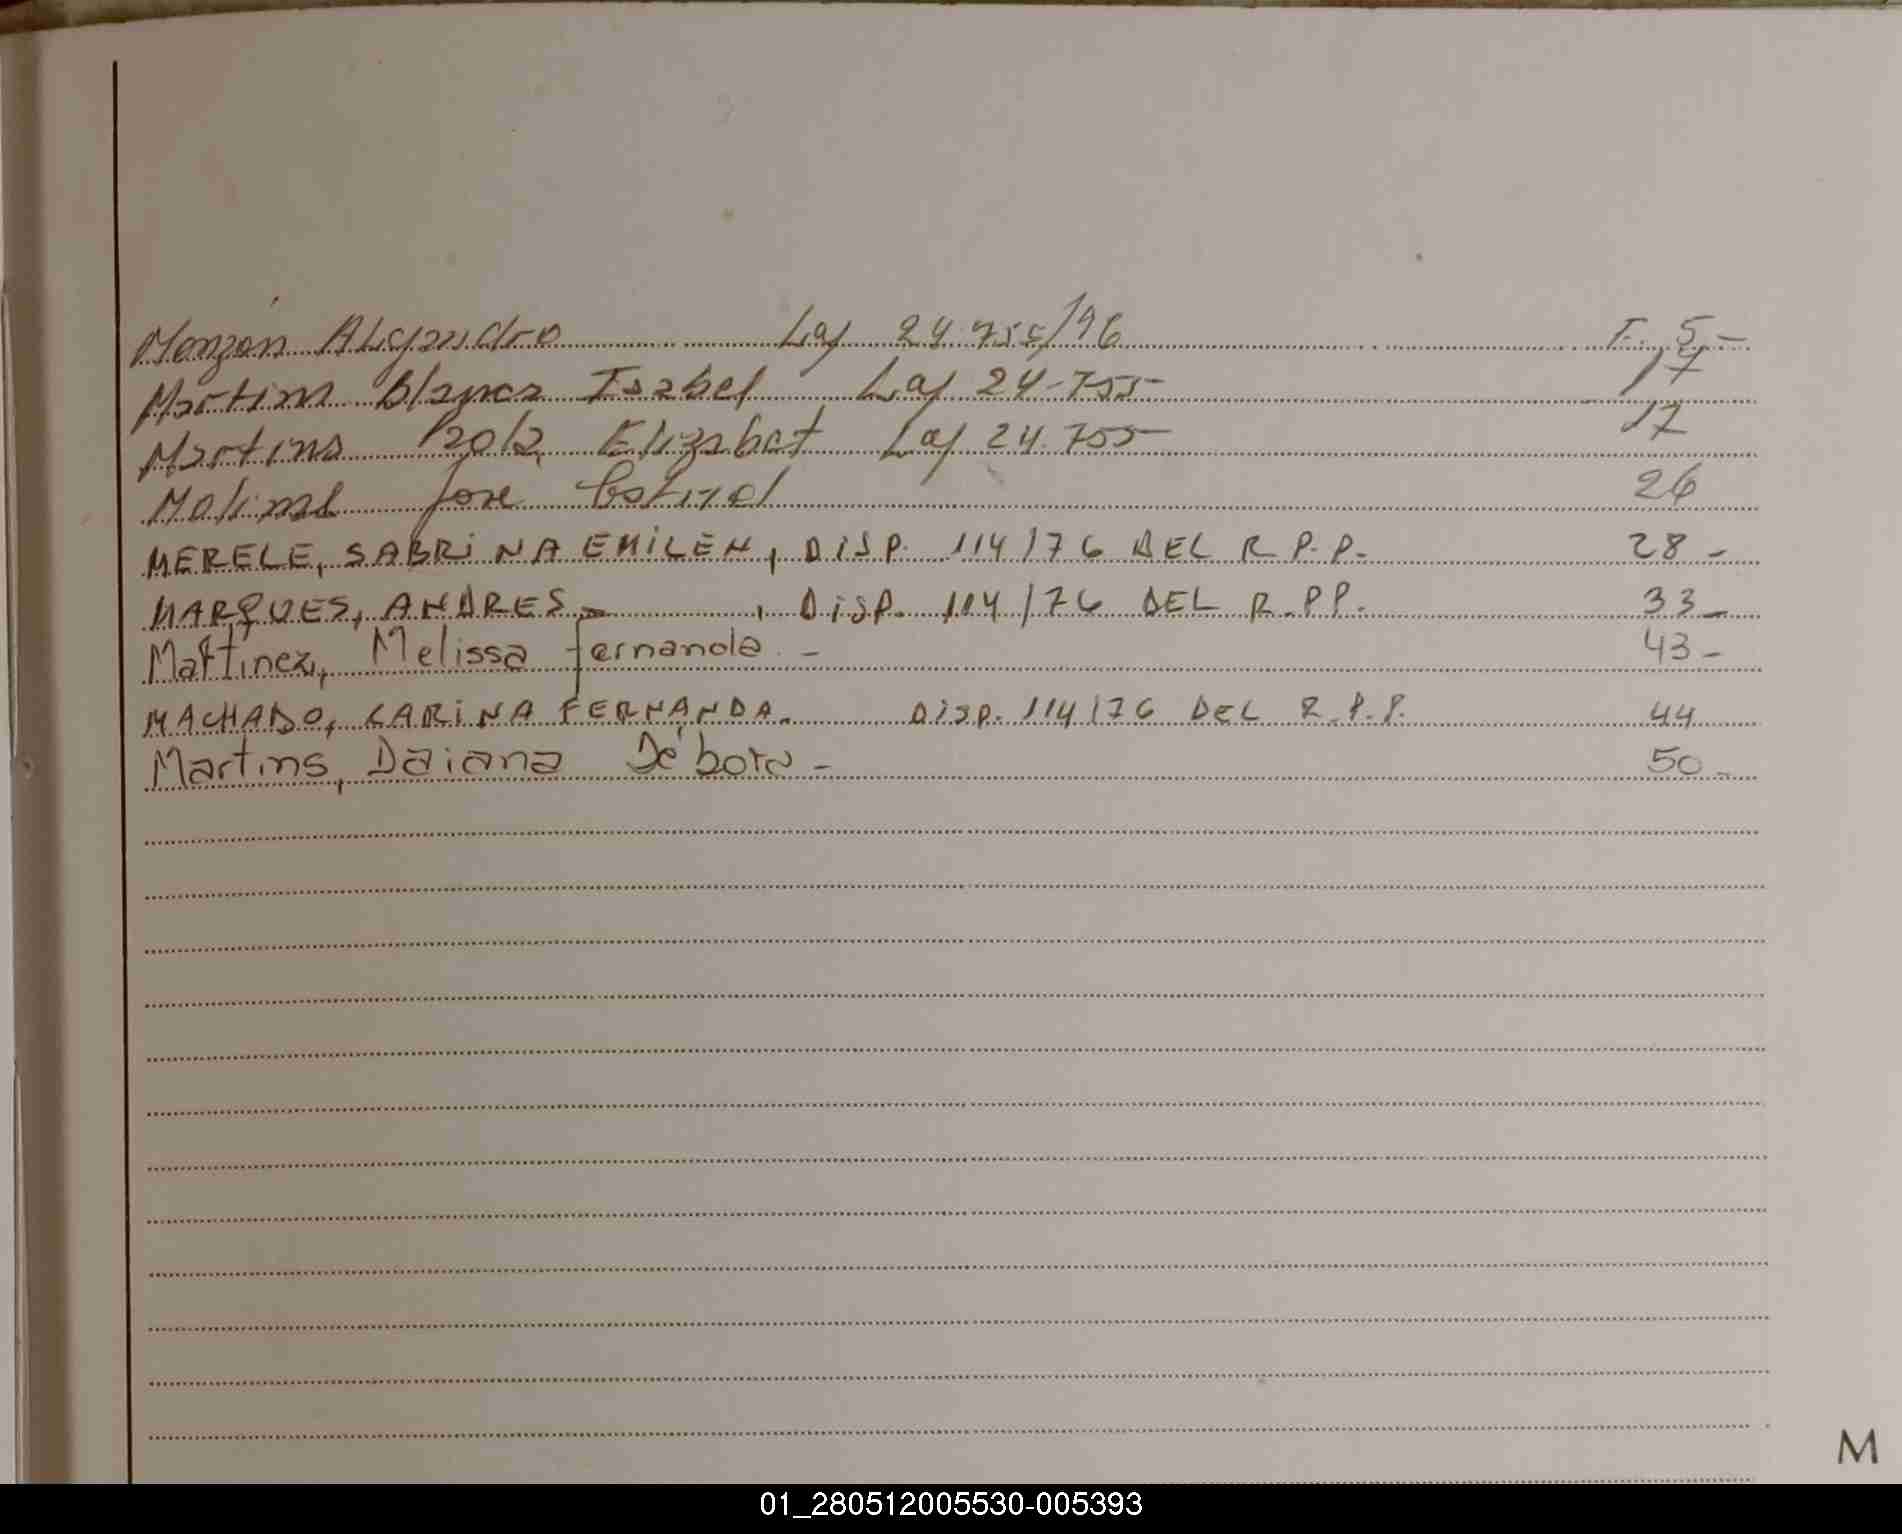 Monzón Alejandro Lay 24.755/96 F. 5-
Martins Blanca Isabel Ley 24-755 17
Martins Elizabet Ley 24.755 17
Molina Jose 26
MERELE, SABRINA EMILEN, DISP. 114/76 DEL R.P.P. 28-
MARQUES, ANDRES , DISP. 114/76 DEL R.P.P. 33-
Martinez, Melissa Fernanda. - 43-
MACHADO, CARINA FERNANDA. DISP. 114/76 DEL R.P.P. 44
Martins, Daiana Débora - 50-
M
01_280512005530-005393